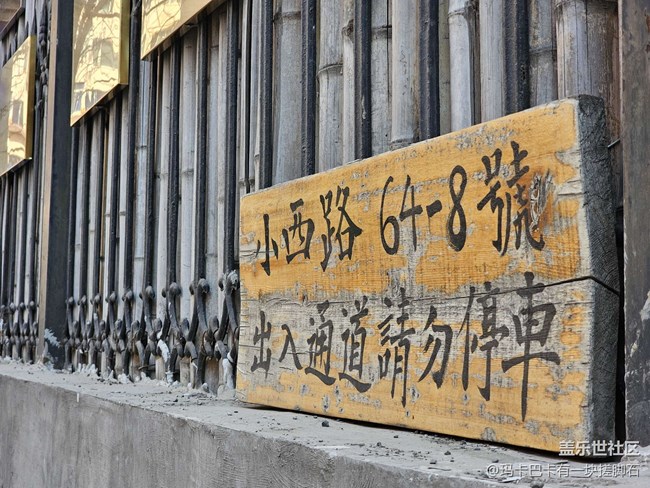 小西路 64-8號
出入通道請勿停車
盖乐世社区
@玛卡巴卡有一块搓脚石